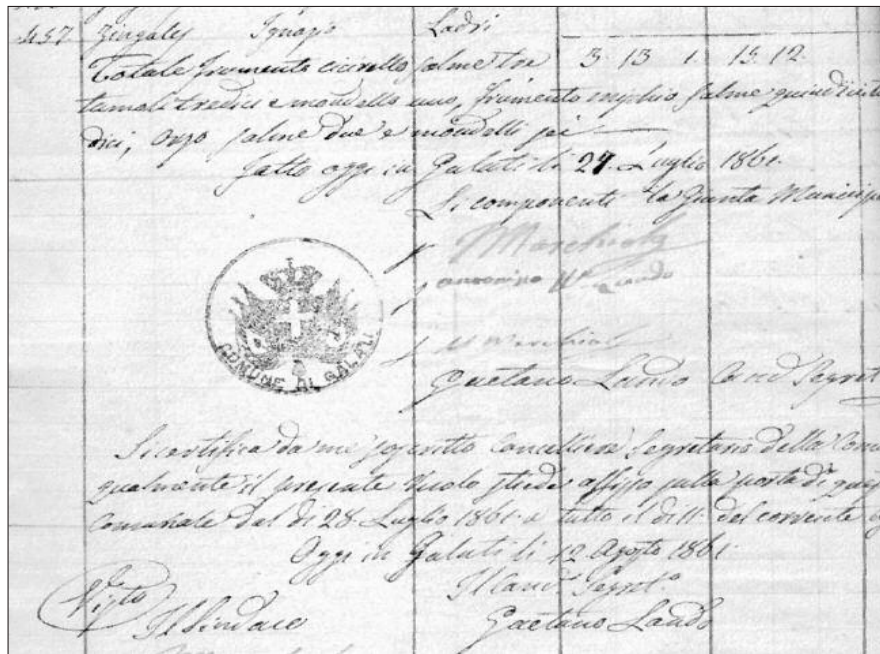 457 Zingales Ignazio Ladri
Totale frumento cicirello salme tre 3. 13 1. 15. 12.
tumoli tredici e mondello uno, frumento miglio salme quindici
dici, orzo salme due e mondelli sei
fatto oggi in Galati li 27. Luglio 1861.
Li componenti la Giunta Municip
Antonino
Gaetano Lando Canc Segret
COMUNE DI GALATI
Si certifica da me soscritto Cancelliere Segretario della Comu
qualmente il presente Ruolo stiede affisso sulla porta di
Comunale dal dì 28. Luglio 1861. a tutto il dì 11. del corrente
Oggi in Galati li 12. Agosto 1861.
Visto Il Canc. Segret.o
Il Sindaco Gaetano Lando